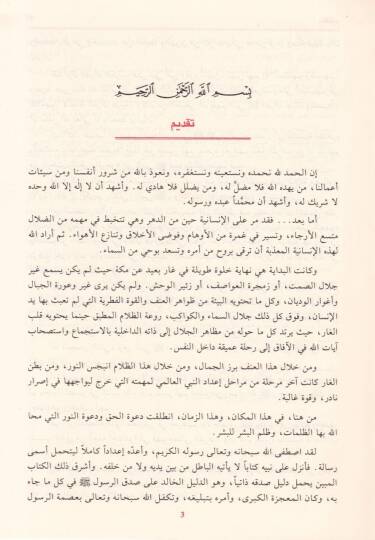 بسم الله الرحمن الرحيم
تقديم
إن الحمد لله نحمده ونستعينه ونستغفره، ونعوذ بالله من شرور أنفسنا ومن سيئات
أعمالنا، من يهده الله فلا مضلّ له، ومن يضلل فلا هادي له. وأشهد أن لا إله إلا الله وحده
لا شريك له، وأشهد أن محمّداً عبده ورسوله.
أما بعد... فقد مر على الإنسانية حين من الدهر وهي تتخبط في مهمه من الضلال
متسع الأرجاء، وتسير في غمرة من الأوهام وفوضى الأخلاق وتنازع الأهواء. ثم أراد الله
لهذه الإنسانية المعذبة أن ترقى بروح من أمره وتسعد بوحي من السماء.
وكانت البداية هي نهاية خلوة طويلة في غار بعيد عن مكة حيث لم يكن يسمع غير
جلال الصمت، أو زمجرة العواصف، أو زئير الوحش. ولم يكن يرى غير وعورة الجبال
وأغوار الوديان، وكل ما تحتويه البيئة من ظواهر العنف والقوة الفطرية التي لم تعبث بها يد
الإنسان، وفوق كل ذلك جلال السماء والكواكب، روعة الظلام المطبق حينما يحتويه قلب
الغار، حيث يرتد كل ما حوله من مظاهر الجلال إلى ذاته الداخلية بالاستجماع واستصحاب
آيات الله في الآفاق إلى رحلة عميقة داخل النفس.
ومن خلال هذا العنف برز الجمال، ومن خلال هذا الظلام انبجس النور، ومن بطن
الغار كانت آخر مرحلة من مراحل إعداد النبي العالمي لمهمته التي خرج ليواجهها في إصرار
نادر، وقوة غالبة.
من هنا، في هذا المكان، وهذا الزمان، انطلقت دعوة الحق ودعوة النور التي محا
الله بها الظلمات، وظلم البشر للبشر.
لقد اصطفى الله سبحانه وتعالى رسوله الكريم، وأعدّه إعداداً كاملاً ليتحمل أسمى
رسالة. فأنزل على نبيه كتاباً لا يأتيه الباطل من بين يديه ولا من خلفه. وأشرق ذلك الكتاب
المبين يحمل دليل صدقه ذاتياً، وهو الدليل الخالد على صدق الرسول ﷺ في كل ما جاء
به، وكان المعجزة الكبرى، وأمره بتبليغه، وتكفل الله سبحانه وتعالى بعصمة الرسول
3